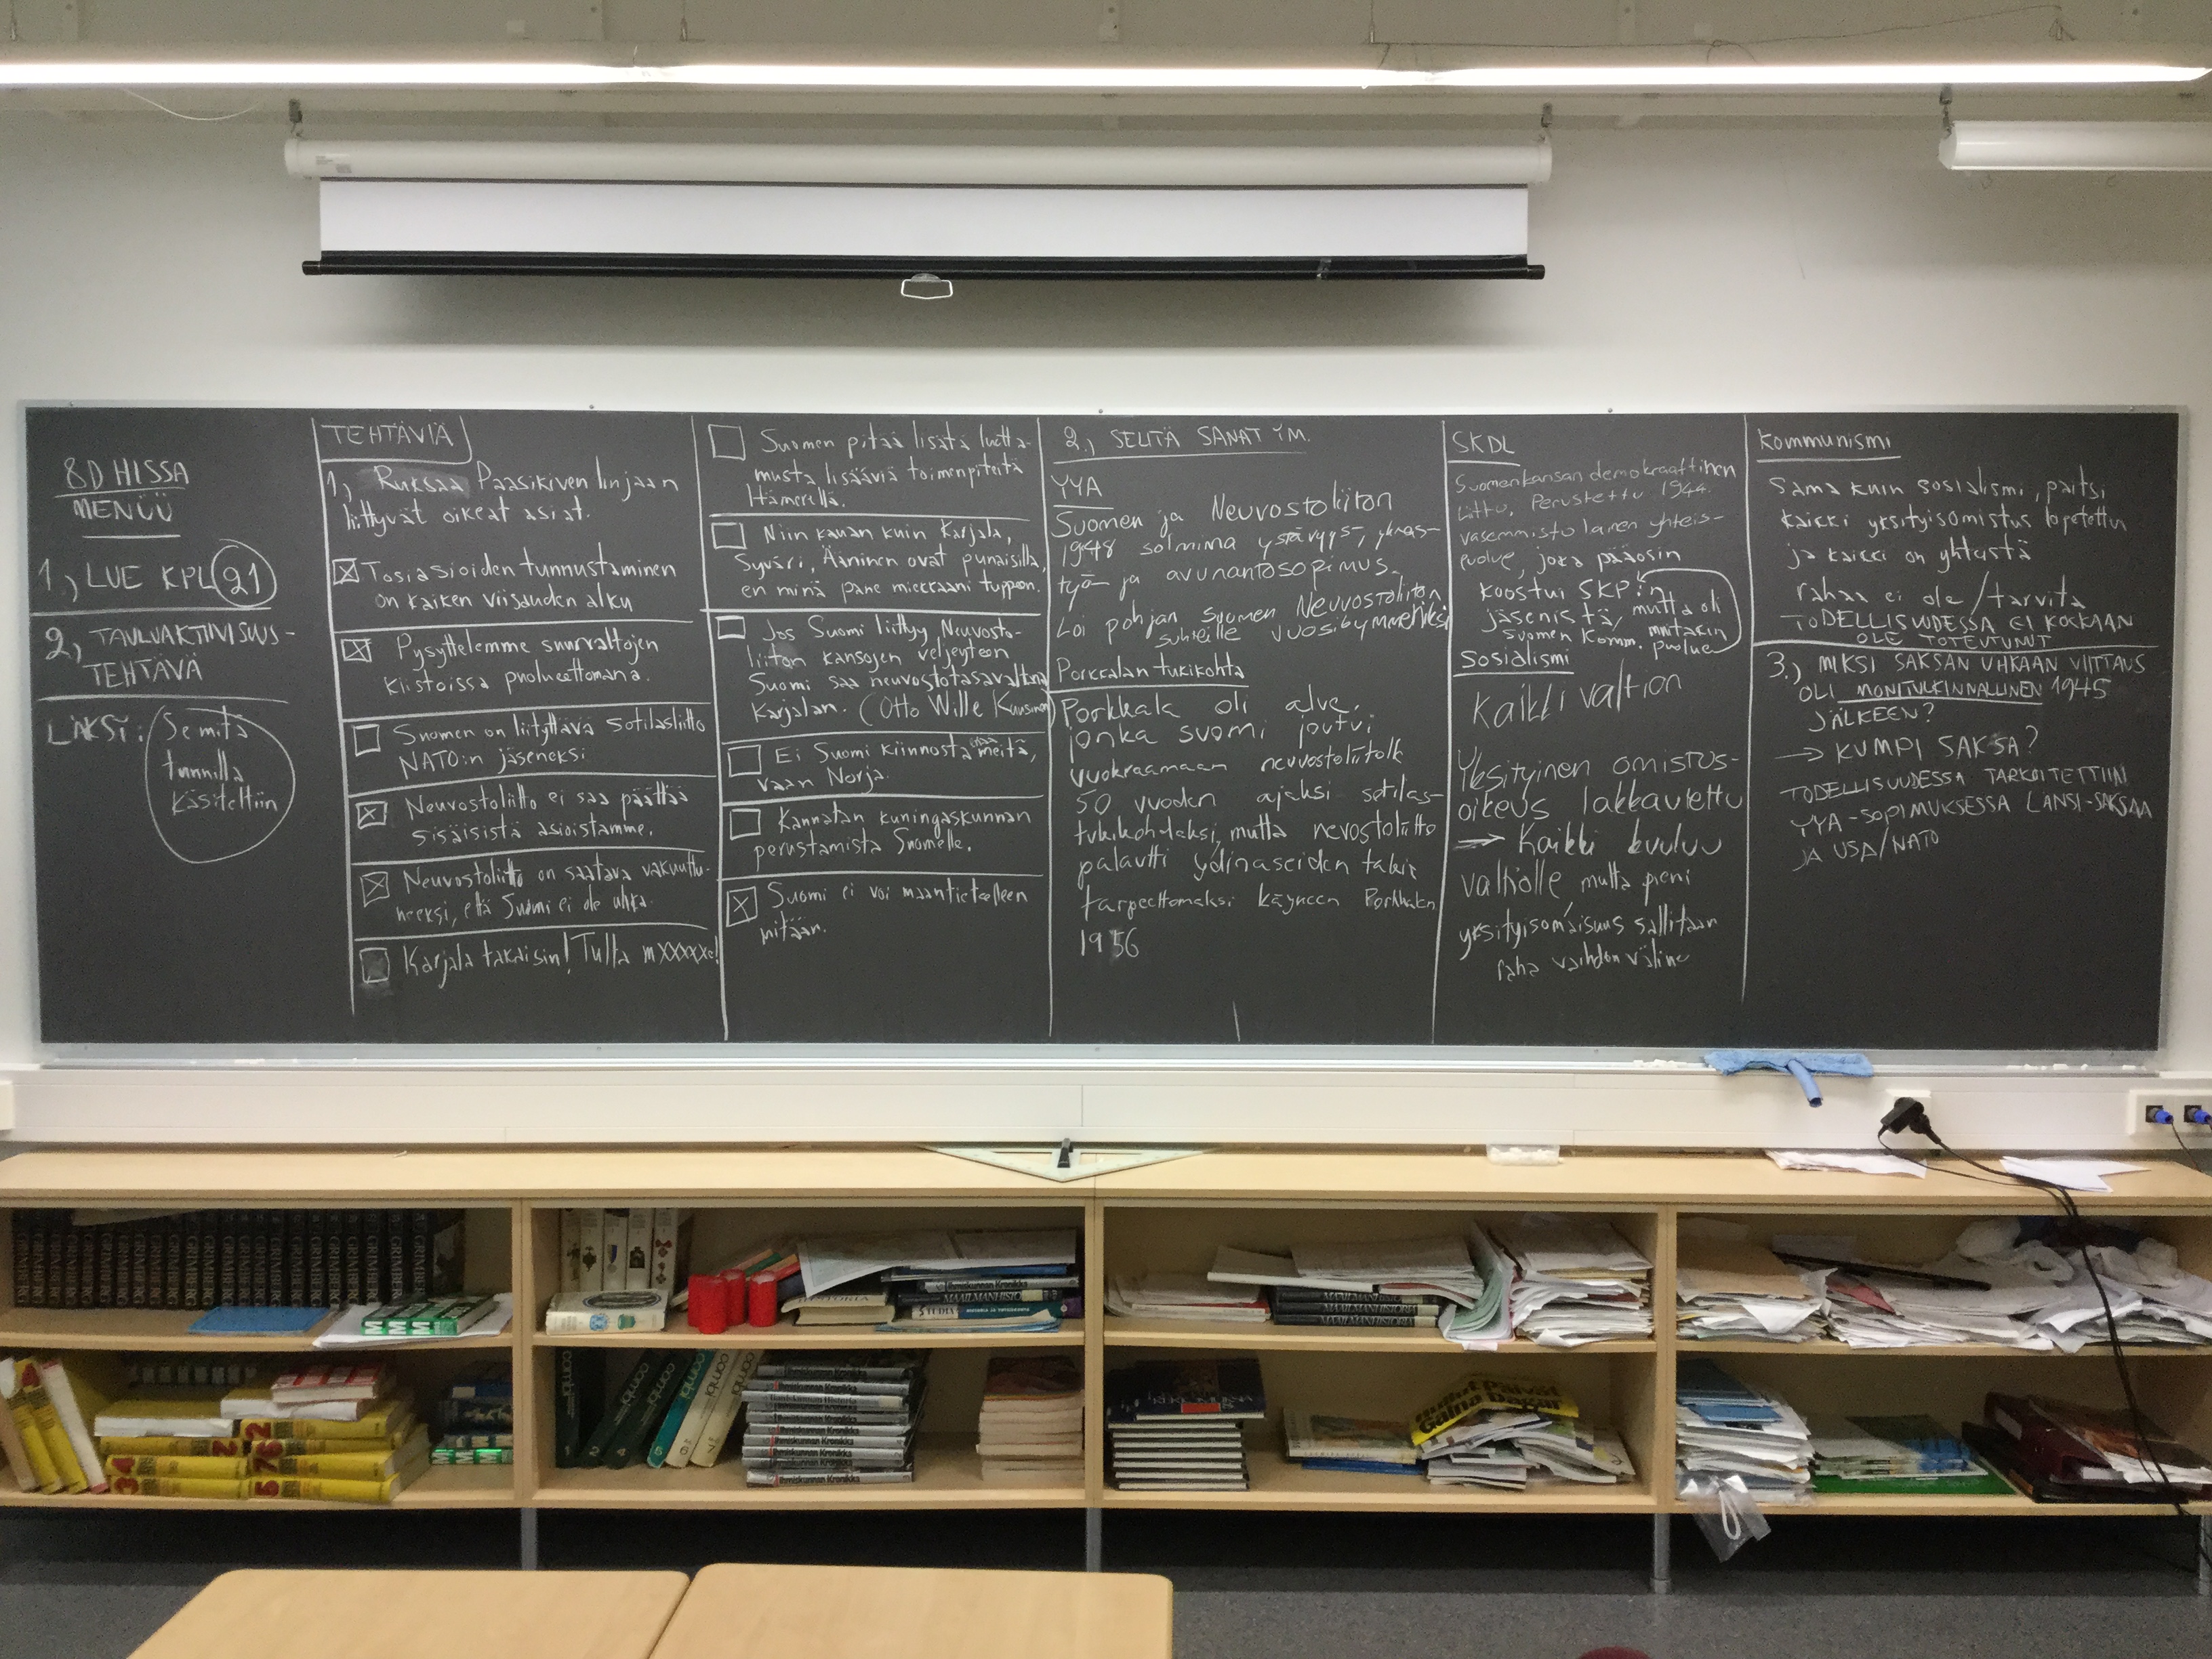 8D HISSA
MENÜÜ
1.) LUE KPL 21
2.) TAULUAKTIIVISUUS-
TEHTÄVÄ
LÄKSI: Se mitä
tunnilla
käsiteltiin
TEHTÄVIÄ
1.) Ruksaa Paasikiven linjaan
liittyvät oikeat asiat.
☒ Tosiasioiden tunnustaminen
on kaiken viisauden alku
☒ Pysyttelemme suurvaltojen
kiistoissa puolueettomana.
☐ Suomen on liityttävä sotilasliitto
NATO:n jäseneksi
☒ Neuvostoliitto ei saa päättää
sisäisistä asioistamme.
☒ Neuvostoliitto on saatava vakuuttu-
neeksi, että Suomi ei ole uhka.
☐ Karjala takaisin! Tulta mXXXXXe!
☐ Suomen pitää lisätä luotta-
musta lisääviä toimenpiteitä
Itämerellä.
☐ Niin kauan kuin Karjala,
Syväri, Ääninen ovat punaisilla,
en minä pane miekkaani tuppeen.
☐ Jos Suomi liittyy Neuvosto-
liiton kansojen veljeyteen
Suomi saa neuvostotasavaltana
Karjalan. (Otto Wille Kuusinen)
☐ Ei Suomi kiinnosta meitä,
vaan Norja.
☐ Kannatan kuningaskunnan
perustamista Suomelle.
☒ Suomi ei voi maantieteelleen
mitään.
2.) SELITÄ SANAT YM.
YYA
Suomen ja Neuvostoliiton
1948 solmima ystävyys, yhteis-
työ- ja avunantosopimus.
Loi pohjan Suomen Neuvostoliiton
suhteille vuosikymmeniksi
Porkkalan tukikohta
Porkkala oli alue,
jonka suomi joutui
vuokraamaan neuvostoliitolle
50 vuoden ajaksi sotilas-
tukikohdaksi, mutta nevostoliitto
palautti ydinaseiden takia
tarpeettomaksi käyneen Porkkalan
1956
SKDL
Suomenkansan demokraattinen
liitto. Perustettu 1944.
vasemmistolainen yhteis-
puolue, joka pääosin
koostui SKP:n
jäsenistä, mutta oli
muitakin
Suomen Komm. puolue
Sosialismi
Kaikki valtion
Yksityinen omistus-
oikeus lakkautettu
→ Kaikki kuuluu
valtiolle mutta pieni
yksityisomaisuus sallitaan
raha vaihdon väline
Kommunismi
Sama kuin sosialismi, paitsi
kaikki yksityisomistus lopetettu
ja kaikki on yhteistä
rahaa ei ole/tarvita
TODELLISUUDESSA EI KOSKAAN
OLE TOTEUTUNUT
3.) MIKSI SAKSAN UHKAAN VIITTAUS
OLI MONITULKINNALLINEN 1945
JÄLKEEN?
→ KUMPI SAKSA?
TODELLISUUDESSA TARKOITETTIIN
YYA-SOPIMUKSESSA LÄNSI-SAKSAA
JA USA/NATO
GRIMBERG
HISTORIA
Ihmiskunnan Kronikka
STUDIA
MAAILMANHISTORIA
MAAILMANHISTORIA
MAAILMANHISTORIA
M M M
Ihmiskunnan Kronikka
Ihmiskunnan Kronikka
Ihmiskunnan Kronikka
Ihmiskunnan Kronikka
Ihmiskunnan Kronikka